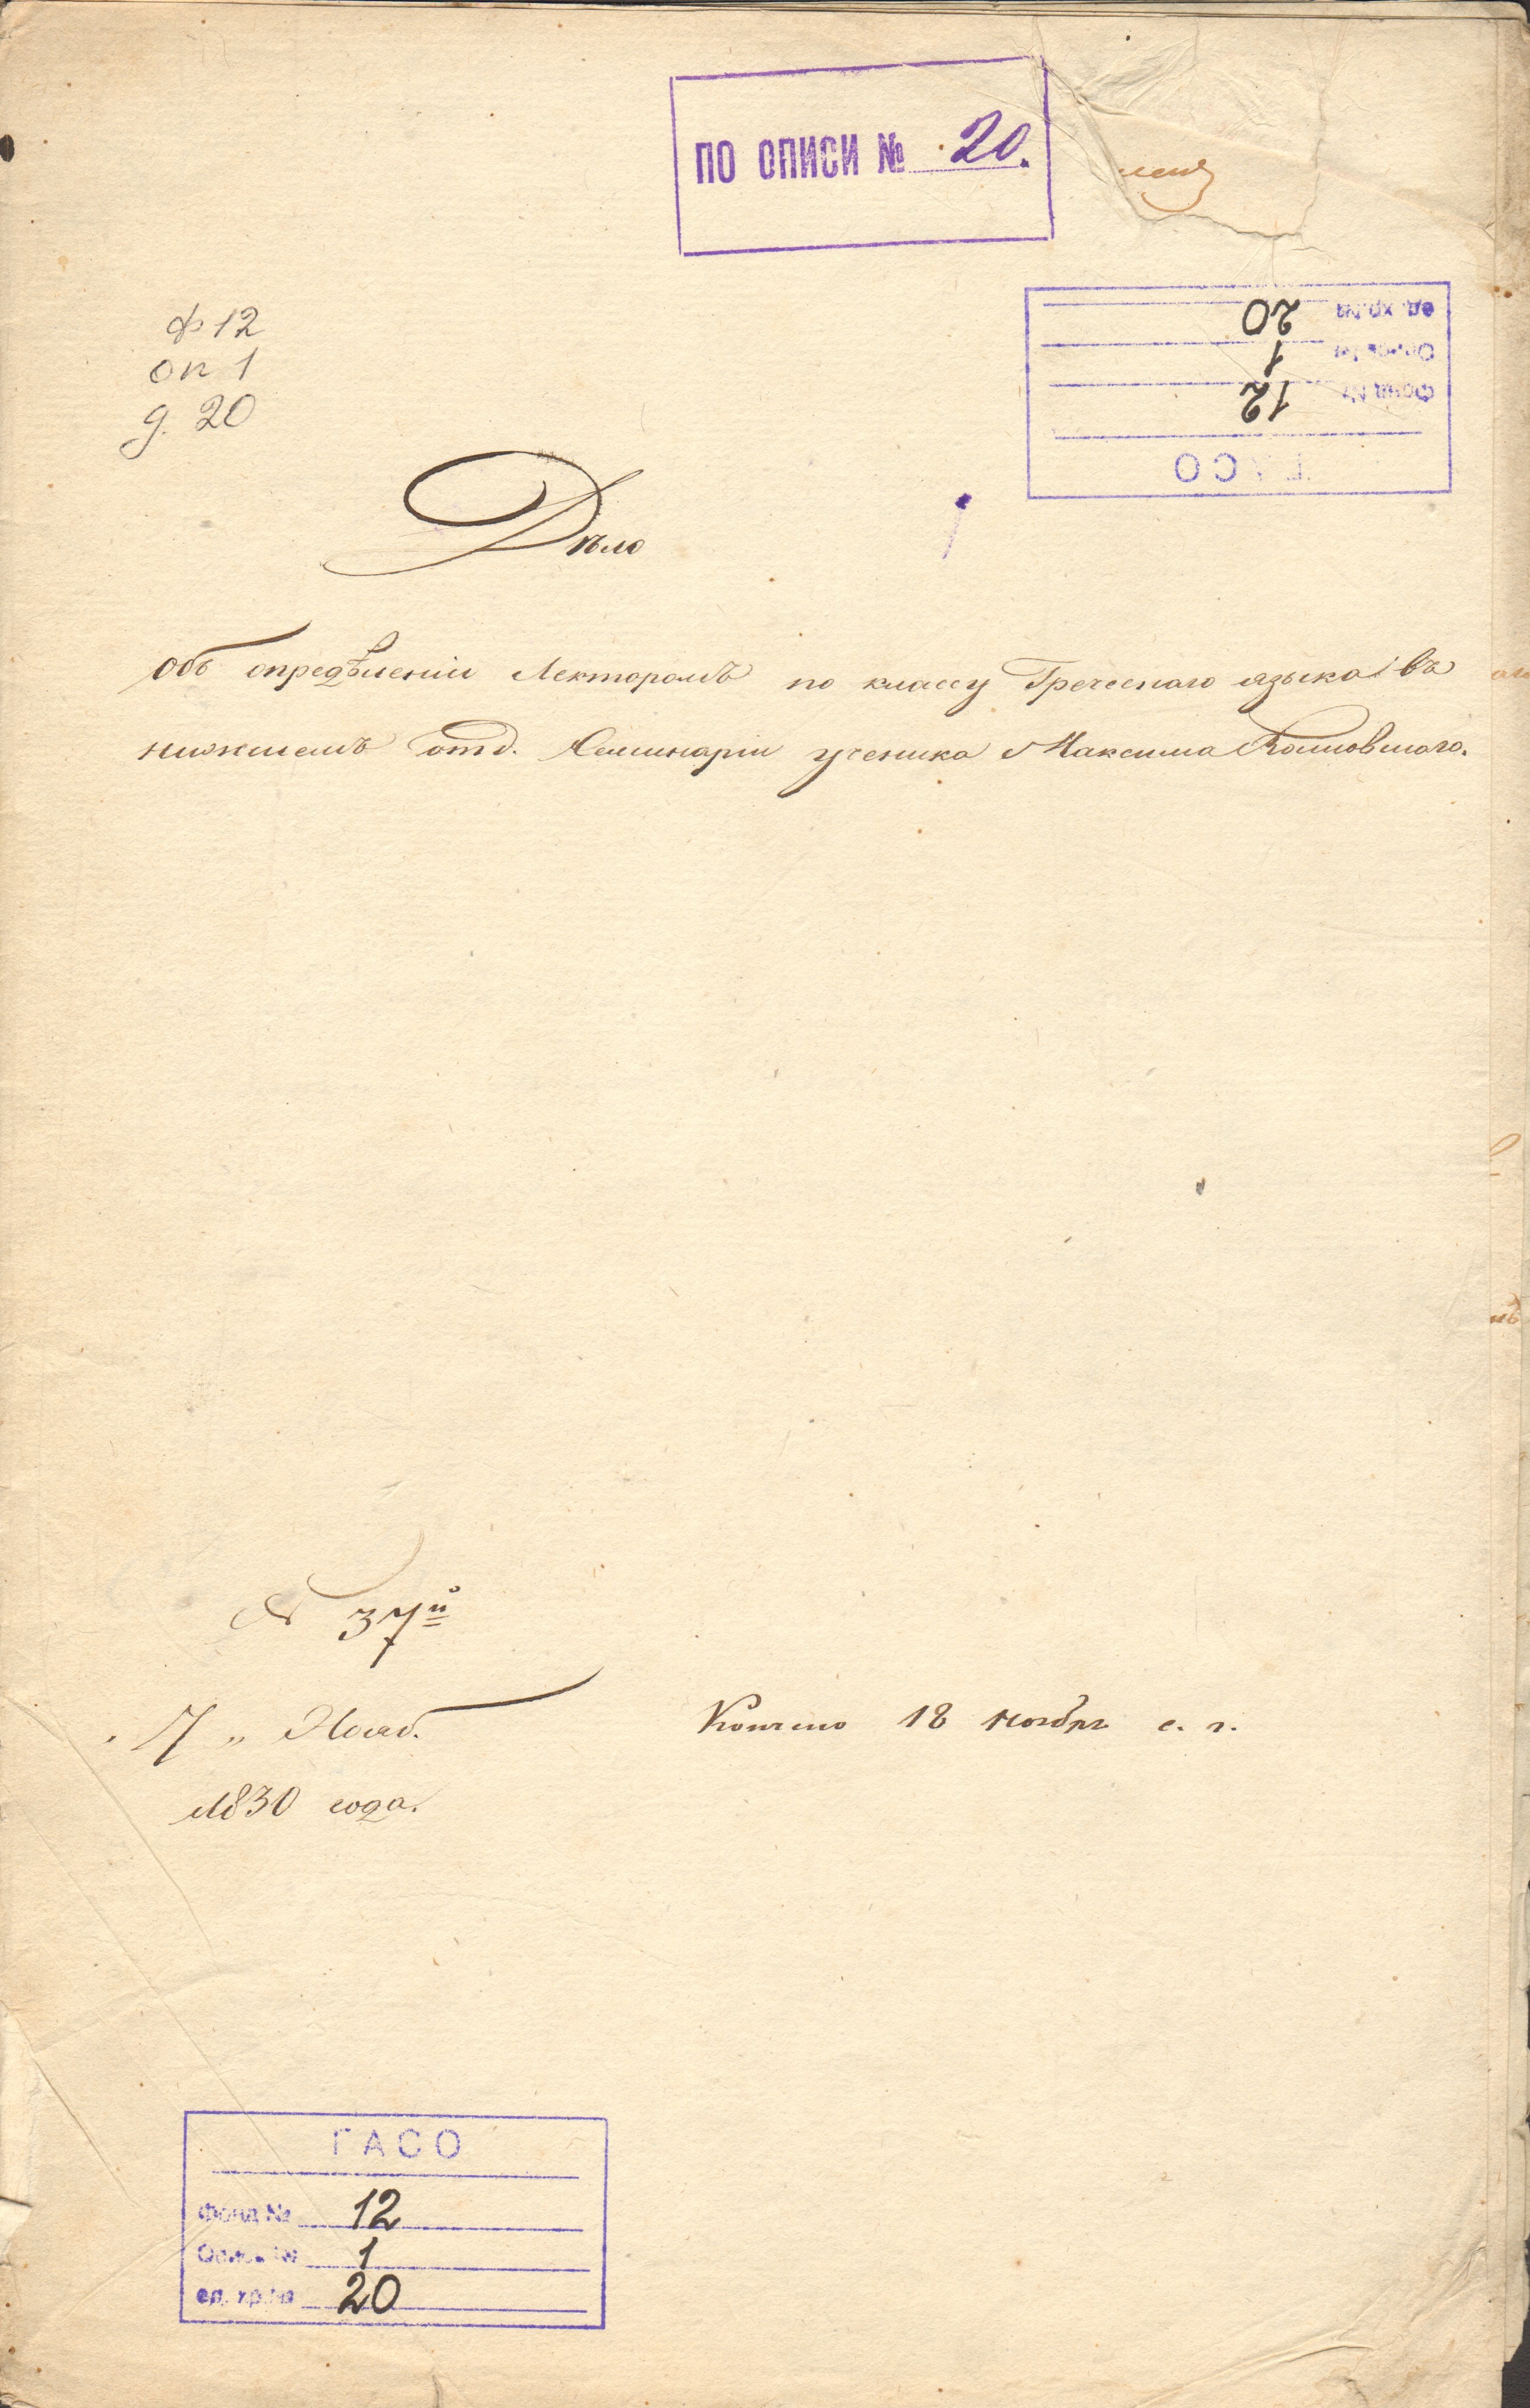 ПО ОПИСИ № 20.
ф 12
оп 1
д. 20
ед. хр. № 20
Опись № 1
Фонд № 12
ГАСО
Дѣло
Объ опредѣленіи Лекторомъ по классу Греческаго языка въ
низшемъ отд. Семинаріи ученика Максима
№ 37й
„ 17 „ Нояб.
1830 года.
Кончено 18 ноября с. г.
ГАСО
Фонд № 12
Опись № 1
ед. хр. № 20